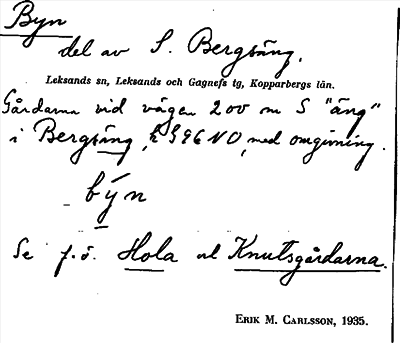 Byn
del av S. Bergsäng.
Leksands sn, Leksands och Gagnefs tg, Kopparbergs län.
Gårdarna vid vägen 200 m S "äng"
i Bergsäng, k 396 NO, med omgivning.
býn
Se f.ö. Hola o Knutsgårdarna.
ERIK M. CARLSSON, 1935.